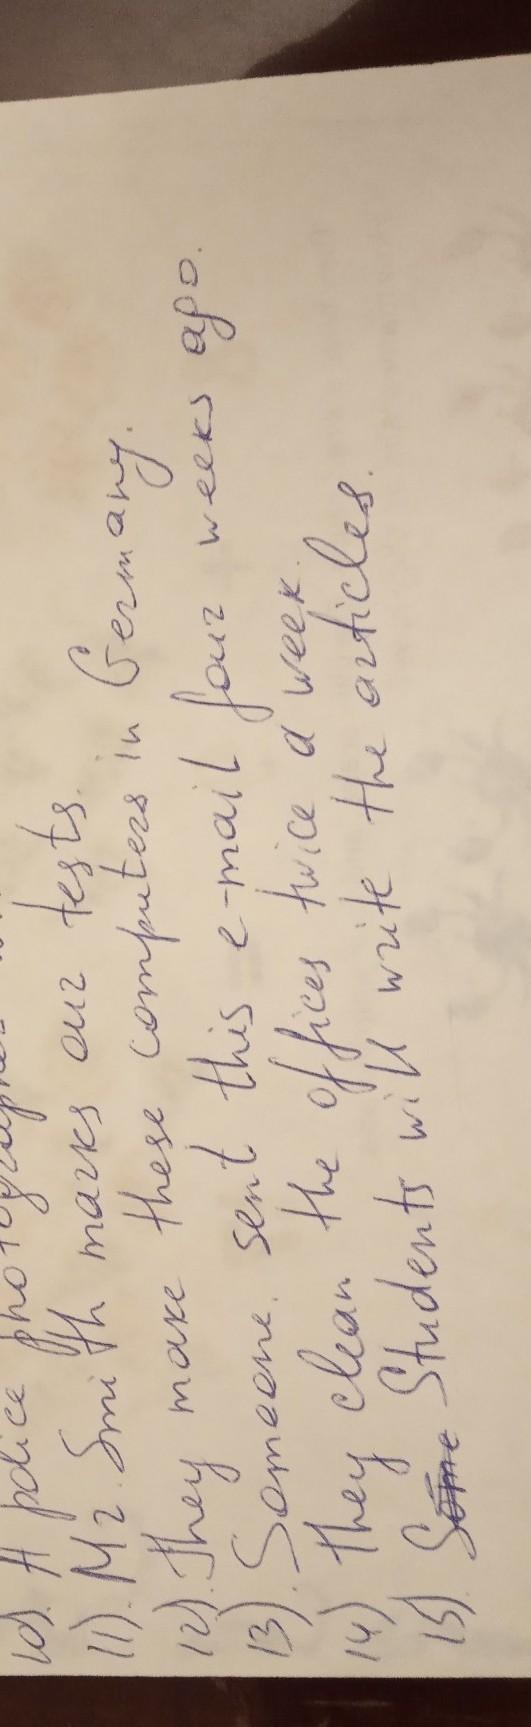 10). A police photographer
11). Mr. Smith marks our tests.
12). They make these computers in Germany.
13). Someone sent this e-mail four weeks ago.
14) They clean the offices twice a week.
15). Students will write the articles.